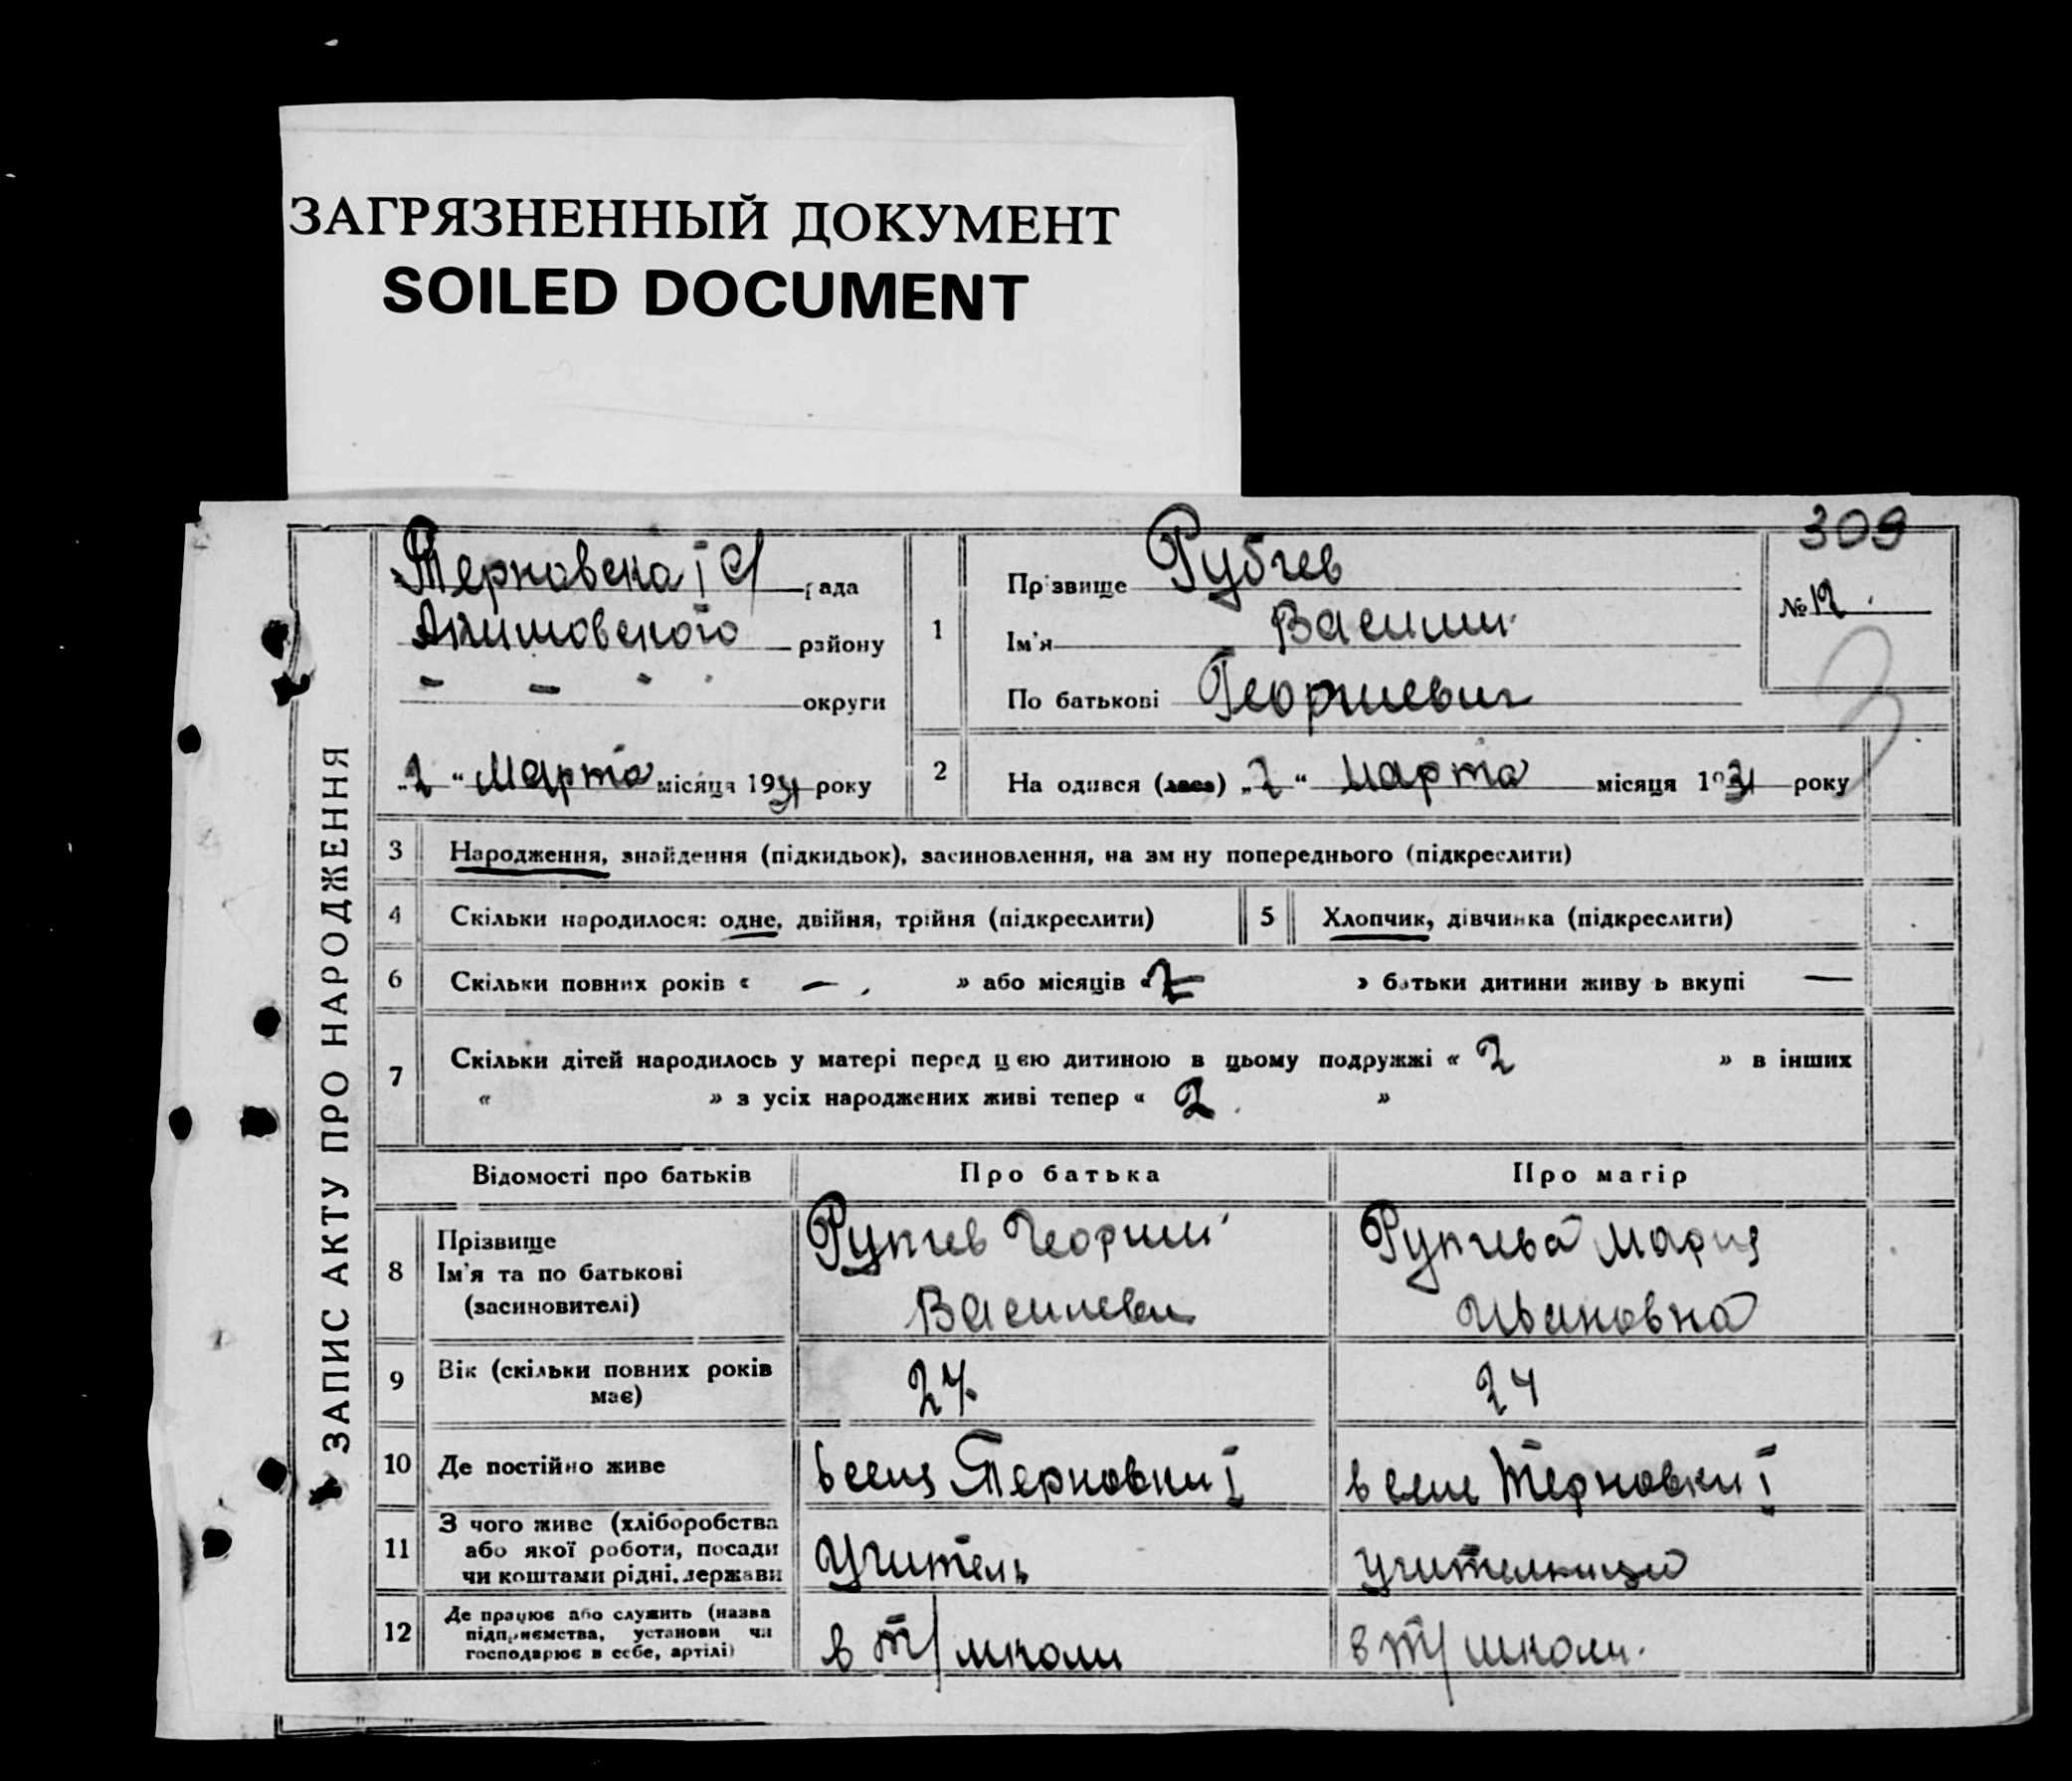 ЗАГРЯЗНЕННЫЙ ДОКУМЕНТ
SOILED DOCUMENT
309
ЗАПИС АКТУ ПРО НАРОДЖЕННЯ
Терновска І С/ рада
Акимовского району
- - - округи
„2“ Марта місяця 1931 року
1
Прізвище Рубчев
Ім'я Василий
По батькові Георгиевич
№ 12.
2 На одився (лася) „2“ марта місяця 1931 року
3 Народження, знайдення (підкидьок), засиновлення, на зм ну попереднього (підкреслити)
4 Скільки народилося: одне, двійня, трійня (підкреслити)
5 Хлопчик, дівчинка (підкреслити)
6 Скільки повних років « — » або місяців « » батьки дитини живу ь вкупі —
7 Скільки дітей народилось у матері перед цєю дитиною в цьому подружжі « 2 » в інших
« » з усіх народжених живі тепер « 2 »
Відомості про батьків Про батька Про матір
8 Прізвище
Ім'я та по батькові
(засиновителі)
Рупчев Георгий
Василеви
Рупчева Мария
Ивановна
9 Вік (скільки повних років
має)
27. 24
10 Де постійно живе в селя Терновки І в селе Терновки І
11 З чого живе (хліборобства
або якої роботи, посади
чи коштами рідні, держави
Учитель учителница
12 Де працює або служить (назва
підприємства, установи чи
господарює в себе, артілі)
в т/школи в т/школи.